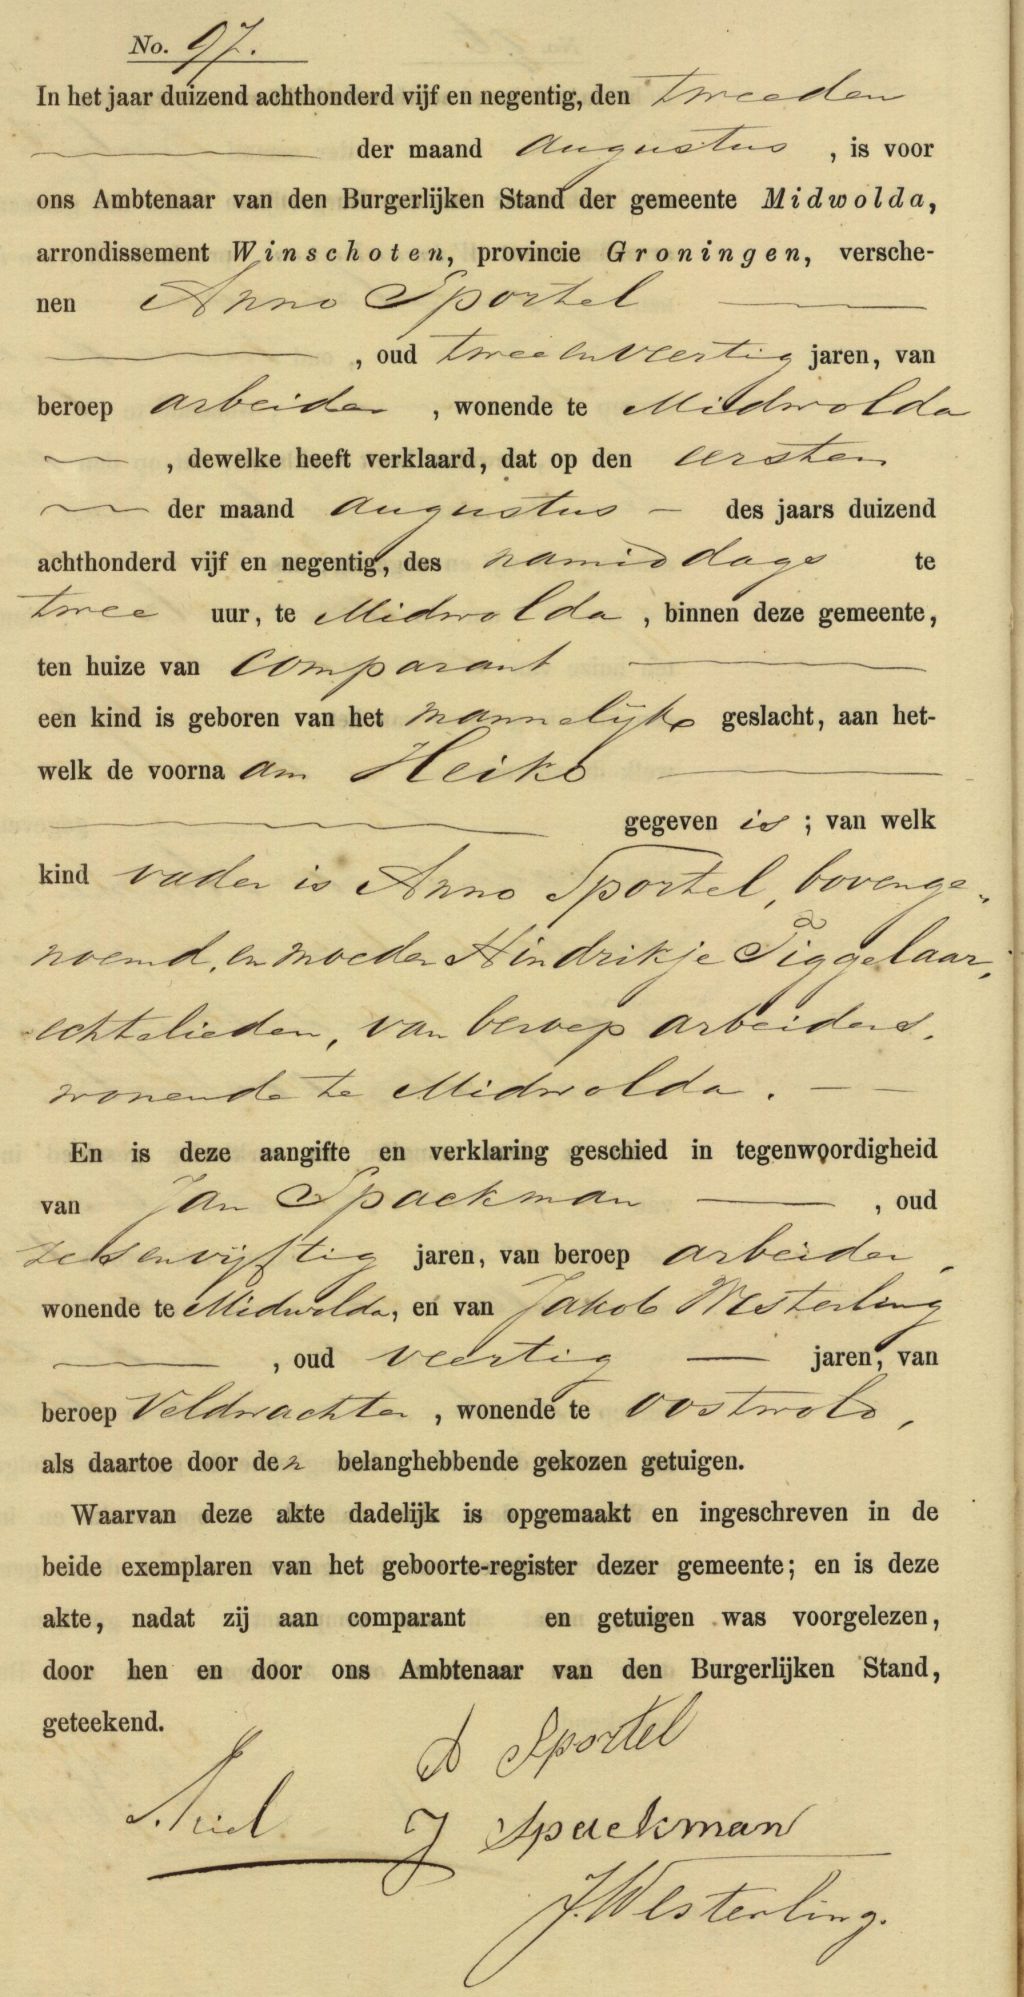 No. 97.
In het jaar duizend achthonderd vijf en negentig, den tweeden
der maand Augustus, is voor
ons Ambtenaar van den Burgerlijken Stand der gemeente Midwolda,
arrondissement Winschoten, provincie Groningen, versche-
nen Anno Sportel
, oud tweeenveertig jaren, van
beroep arbeider, wonende te Midwolda
, dewelke heeft verklaard, dat op den eersten
der maand Augustus - des jaars duizend
achthonderd vijf en negentig, des namiddags te
twee uur, te Midwolda, binnen deze gemeente,
ten huize van comparant
een kind is geboren van het mannelijke geslacht, aan het-
welk de voornaam Heiko
gegeven is; van welk
kind vader is Anno Sportel, bovenge„
noemd, en moeder Hindrikje Tiggelaar,
echtelieden, van beroep arbeiders,
wonende te Midwolda. - -
En is deze aangifte en verklaring geschied in tegenwoordigheid
van Jan Spaekman, oud
zesenvijftig jaren, van beroep arbeider,
wonende te Midwolda, en van Jakob Westerling
, oud veertig - jaren, van
beroep Veldwachter, wonende te Oostwold,
als daartoe door den belanghebbende gekozen getuigen.
Waarvan deze akte dadelijk is opgemaakt en ingeschreven in de
beide exemplaren van het geboorte-register dezer gemeente; en is deze
akte, nadat zij aan comparant en getuigen was voorgelezen,
door hen en door ons Ambtenaar van den Burgerlijken Stand,
geteekend.
A Sportel
J Spaekman
J. Westerling.